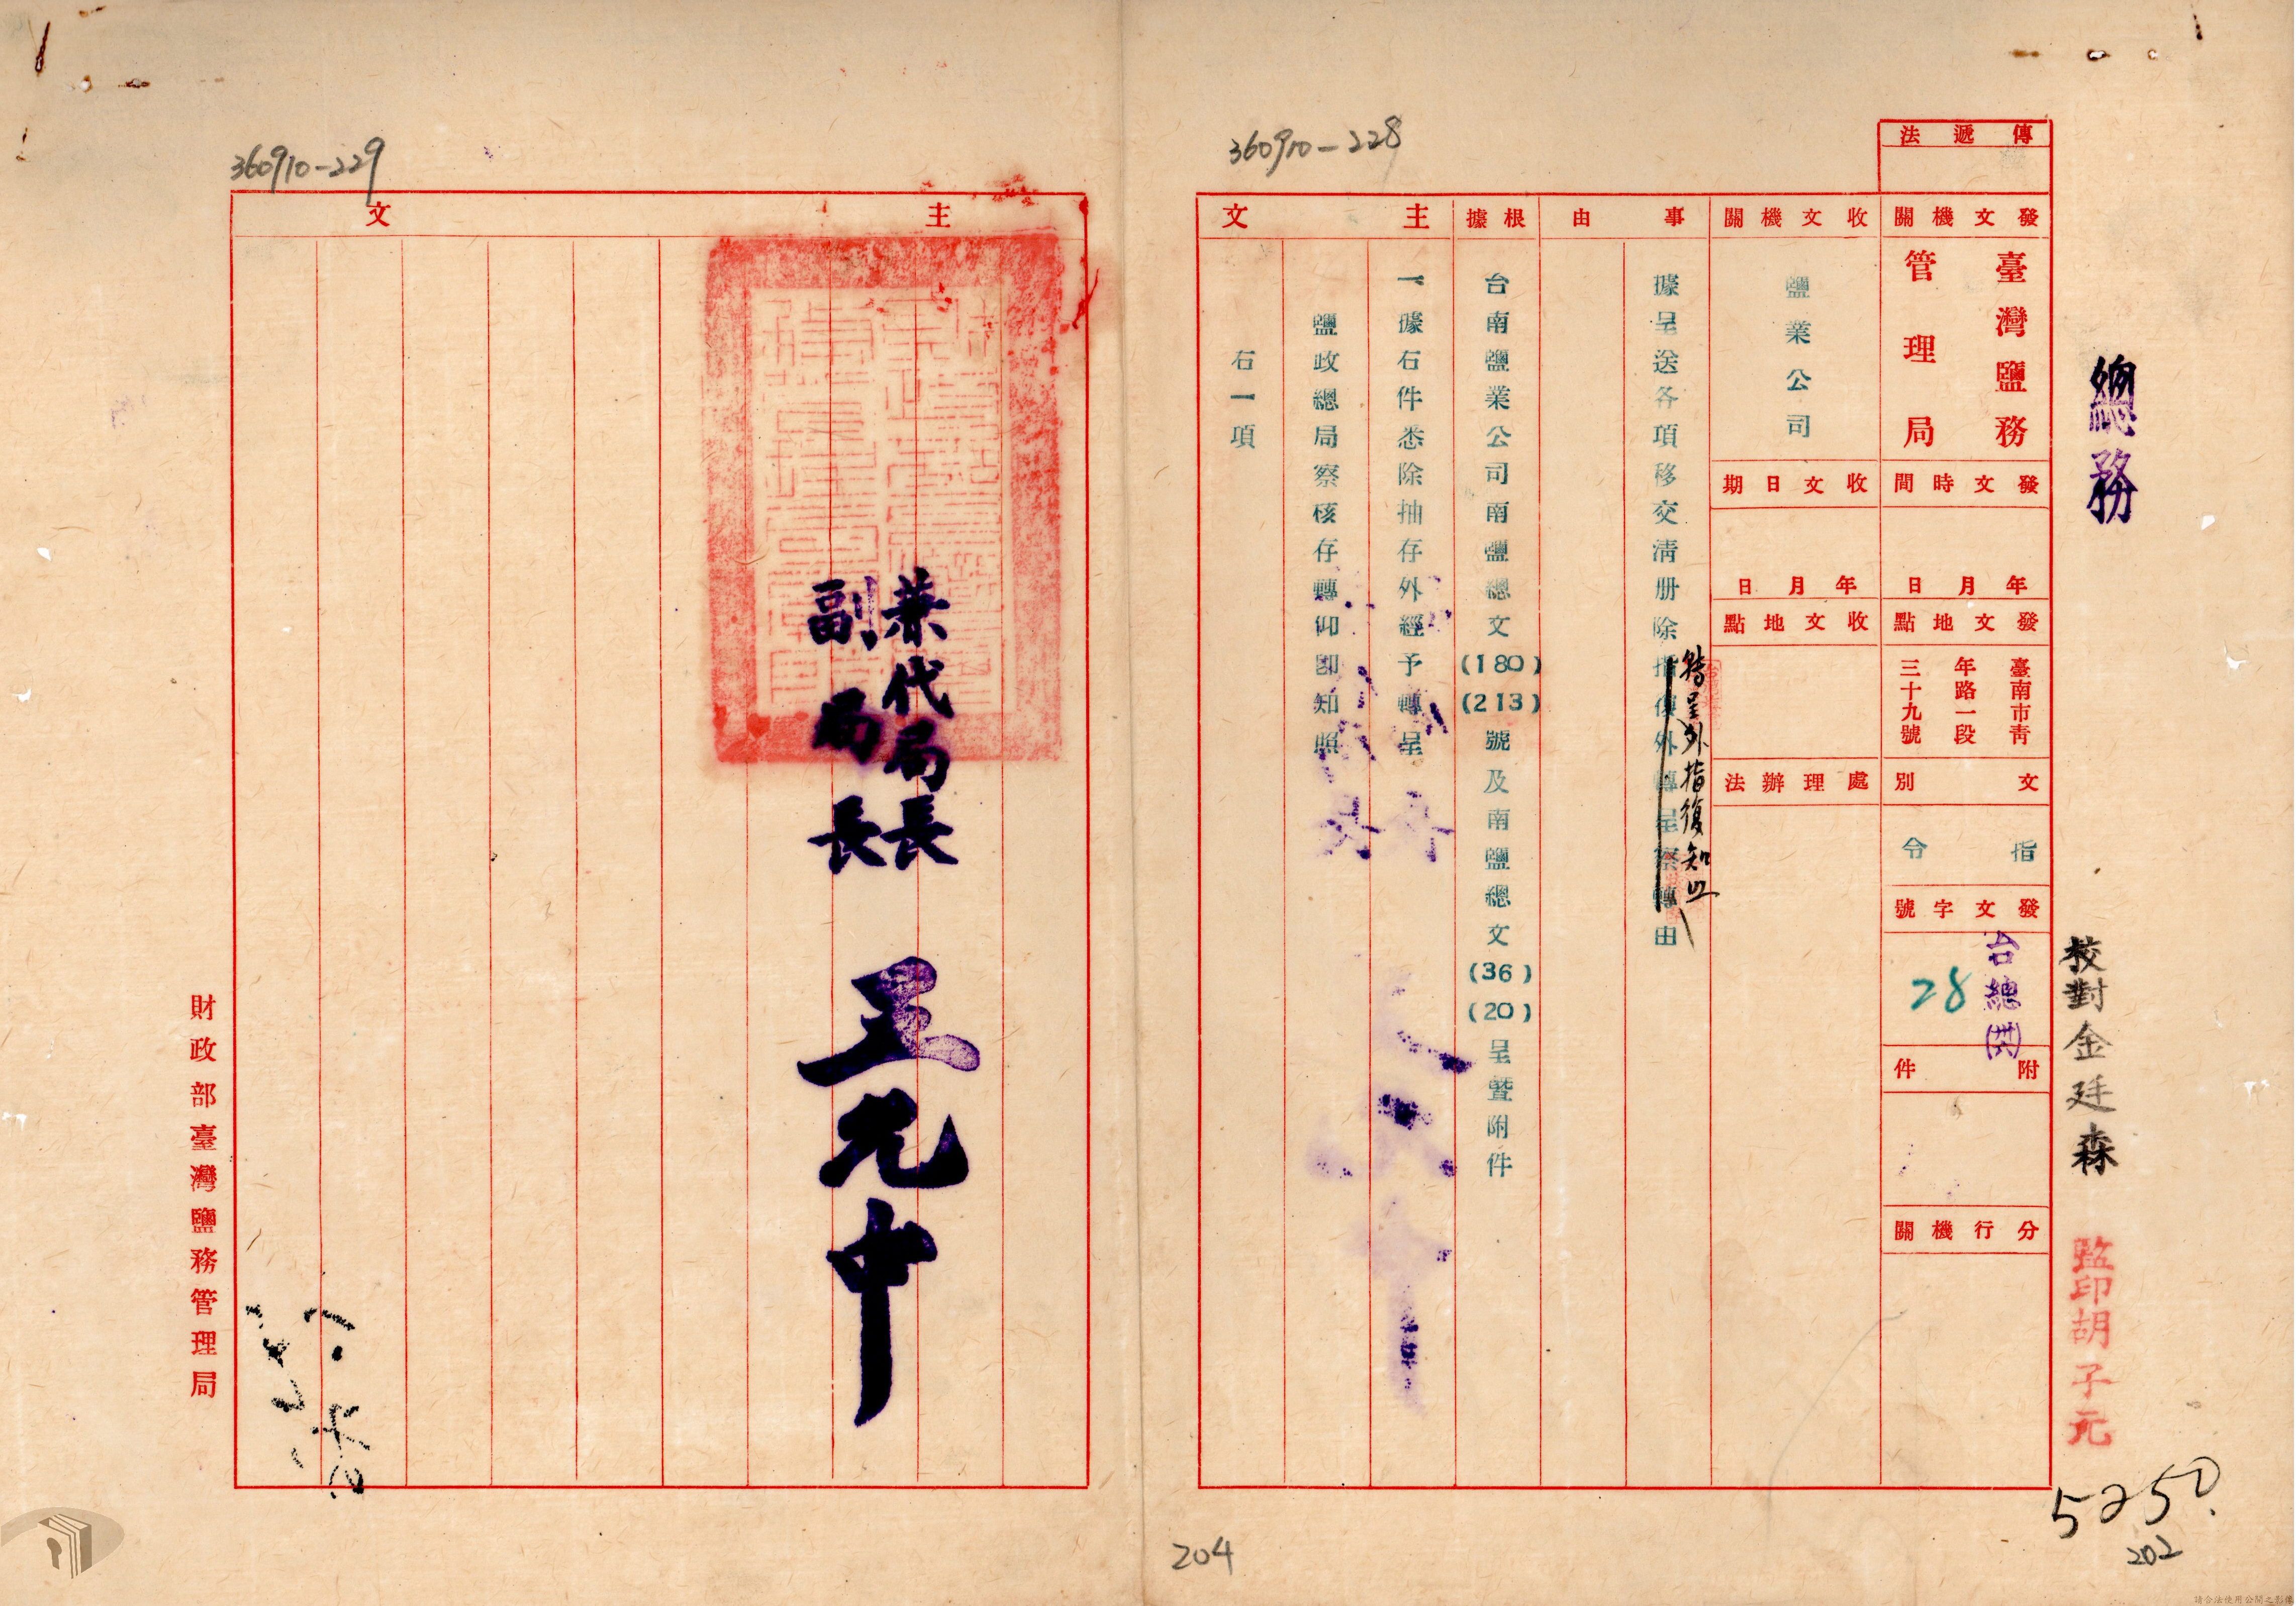 總務
校對金廷森
監印胡子元
5250.
202
傳遞法
發文機關
臺灣鹽務
管理局
發文時間
年月日
發文地點
臺南市青
年路一段
三十九號
文別
指令
發文字號
台總(卅六)
28
附件
分行機關
收文機關
鹽業公司
收文日期
年月日
收文地點
處理辦法
事由
據呈送各項移交清册除
轉呈外指復知照
由
根據
台南鹽業公司南鹽總文(180)(213)號及南鹽總文(36)(20)呈暨附件
主文
一據右件悉除抽存外經予轉呈
鹽政總局察核存轉仰卽知照
右一項
360910-228
204
360910-229
主文
兼代局長
副局長
王允中
財政部臺灣鹽務管理局
請合法使用公開之影像